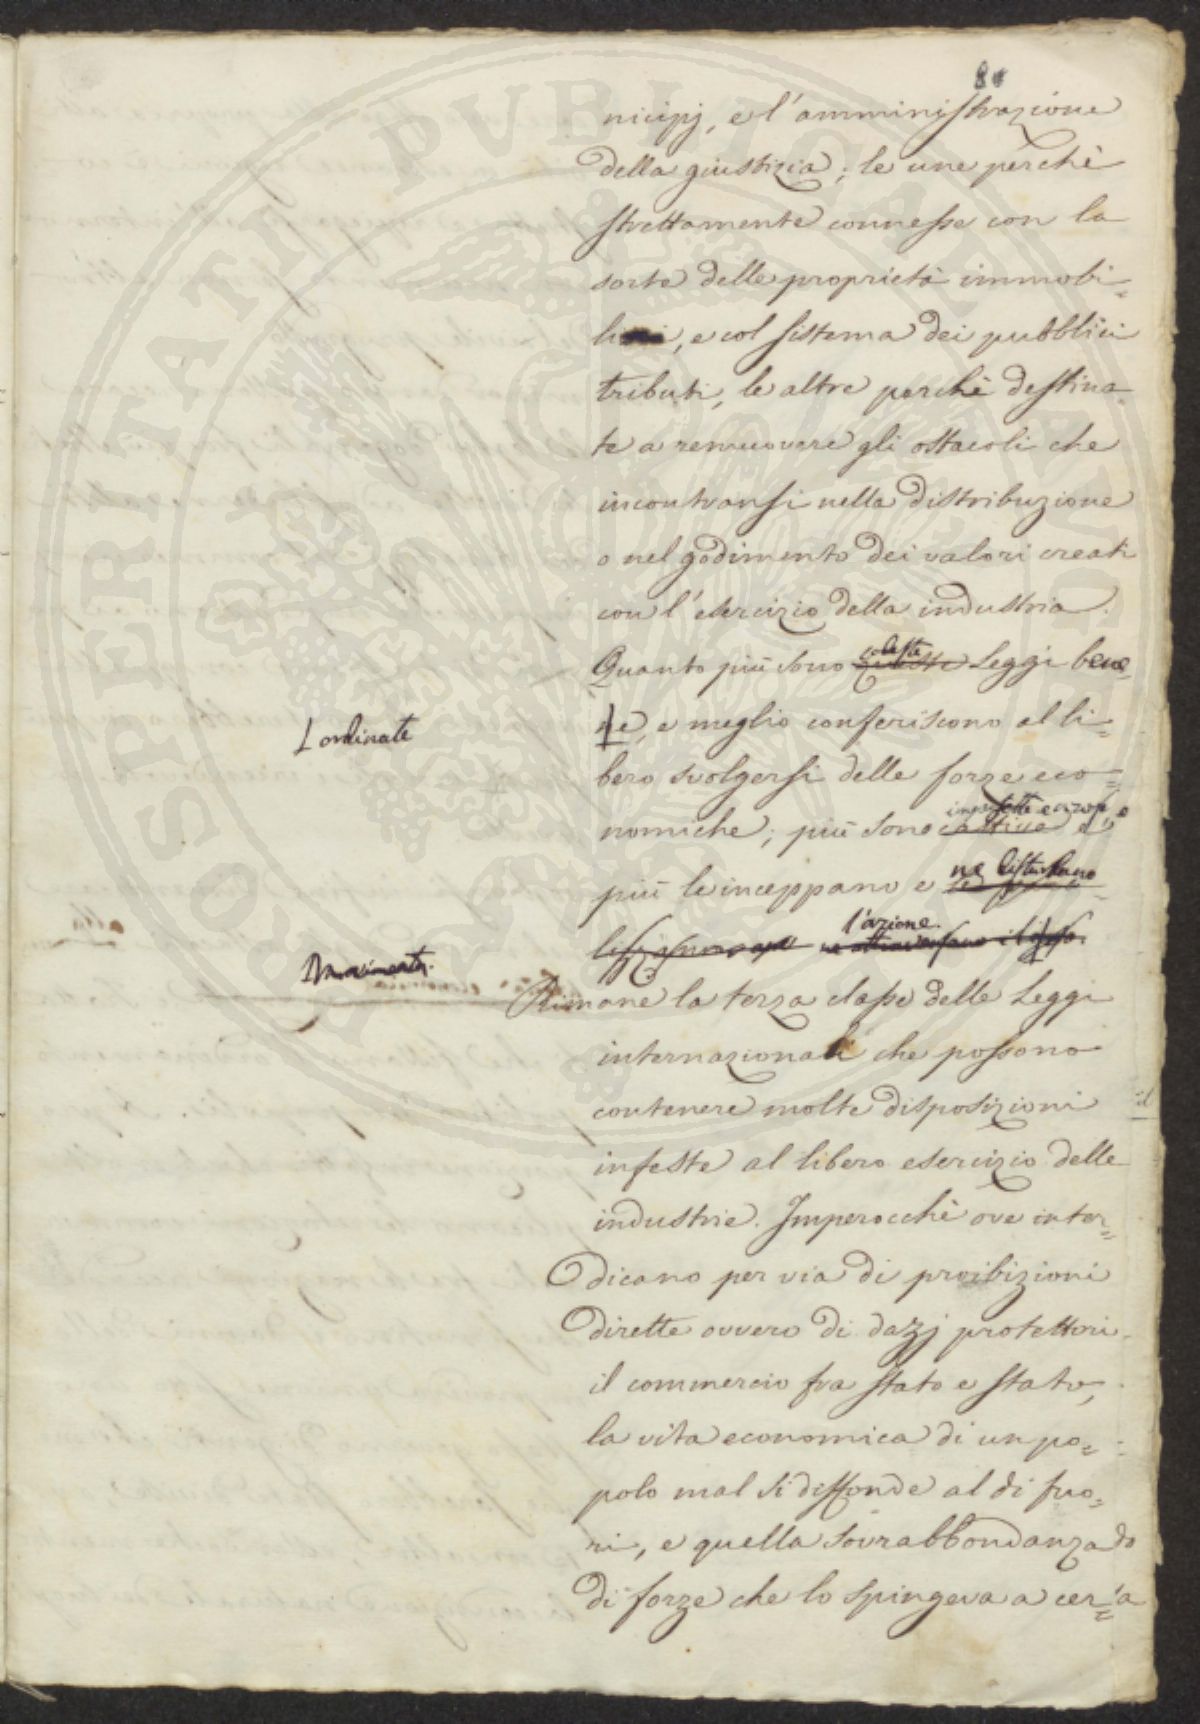 81
nicipj, e l'amministrazione
della giustizia; le une perchè
strettamente connesse con la
sorte delle proprietà immobi=
li, e col sistema dei pubblici
tributi, le altre perchè destina
te a remuovere gli ostacoli che
incontransi nella distribuzione
o nel godimento dei valori creati
con l'esercizio della industria.
coteste
Quanto più sono queste Leggi bene
ordinate
e, e meglio conferiscono al li=
bero svolgersi delle forze eco=
imperfette e
nomiche; più sono cattive e
ne disturbano
più le inceppano e
l'azione.
ne attraversano il
Rimane la terza classe delle Leggi
internazionali che possono
contenere molte disposizioni
infeste al libero esercizio delle
industrie. Imperocchè ove inter=
dicano per via di proibizioni
dirette ovvero di dazj protettori
il commercio fra stato e stato,
la vita economica di un po=
polo mal si diffonde al di fuo=
ri, e quella sovrabbondanza
di forze che lo spingeva a cer=
PROSPERITATI PUBLICAE